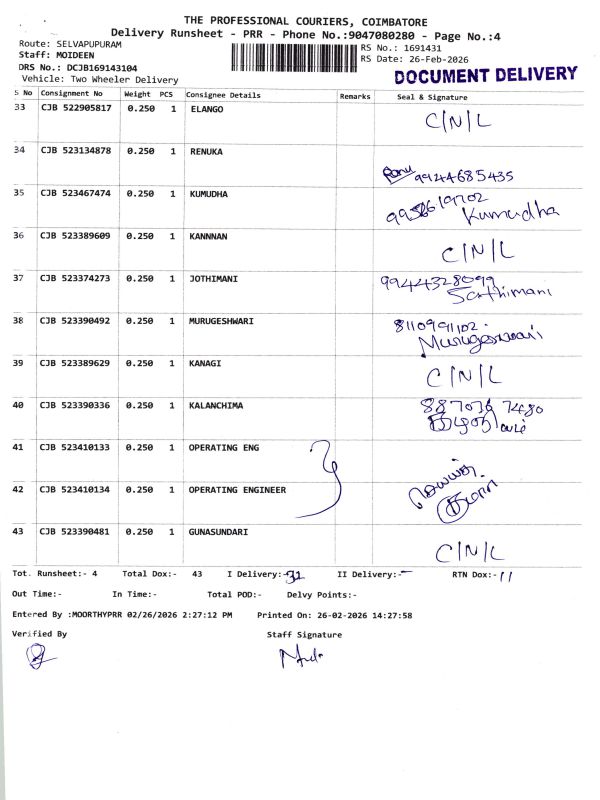 THE PROFESSIONAL COURIERS, COIMBATORE
Delivery Runsheet - PRR - Phone No.:9047080280 - Page No.:4
Route: SELVAPUPURAM
Staff: MOIDEEN
DRS No.: DCJB169143104
Vehicle: Two Wheeler Delivery
RS No.: 1691431
RS Date: 26-Feb-2026
DOCUMENT DELIVERY
S No Consignment No Weight PCS Consignee Details Remarks Seal & Signature
33 CJB 522905817 0.250 1 ELANGO C/N/L
34 CJB 523134878 0.250 1 RENUKA
9944685435
35 CJB 523467474 0.250 1 KUMUDHA
Kumudha
36 CJB 523389609 0.250 1 KANNNAN C/N/L
37 CJB 523374273 0.250 1 JOTHIMANI 9944328099
38 CJB 523390492 0.250 1 MURUGESHWARI 8110991102.
39 CJB 523389629 0.250 1 KANAGI C/N/L
40 CJB 523390336 0.250 1 KALANCHIMA 887036 7480
41 CJB 523410133 0.250 1 OPERATING ENG
42 CJB 523410134 0.250 1 OPERATING ENGINEER
43 CJB 523390481 0.250 1 GUNASUNDARI C/N/L
Tot. Runsheet:- 4 Total Dox:- 43 I Delivery:- II Delivery:- RTN Dox:- 11
Out Time:- In Time:- Total POD:- Delvy Points:-
Entered By :MOORTHYPRR 02/26/2026 2:27:12 PM Printed On: 26-02-2026 14:27:58
Verified By Staff Signature